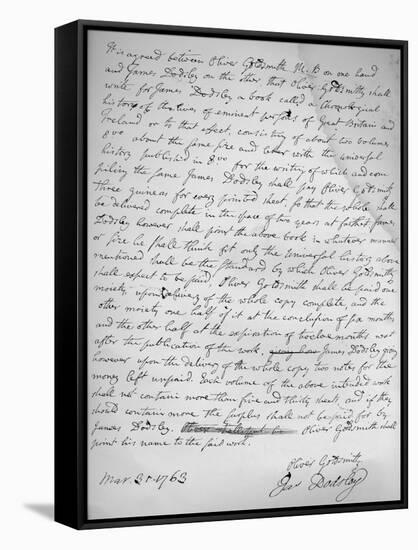 It is agreed between Oliver Goldsmith M.B on one hand
and James Dodsley on the other that Oliver Goldsmith shall
write for James Dodsley a book called a Chronological
history of the lives of eminent persons of Great Britain and
Ireland or to that effect, consisting of about two volumes
8vo about the same size and letter with the universal
history published in 8vo for the writing of which and com
piling the same James Dodsley shall pay Oliver Goldsmith
three guineas for every printed sheet, so that the whole shall
be delivered complete in the space of two years at farthest James
Dodsley however shall print the above book in whatever manner
or size he shall think fit only the Universal history above
mentioned shall be the standard by which Oliver Goldsmith
shall expect to be paid. Oliver Goldsmith shall be paid one
moiety upon delivery of the whole copy complete, and the
other moiety one half of it at the conclusion of six months
and the other half at the expiration of twelve months next
after the publication of the work. James Dodsley giving
however upon the delivery of the whole copy two notes for the
money left unpaid. Each volume of the above intended work
shall not contain more than five and thirty sheets, and if they
should contain more the surplus shall not be paid for by
James Dodsley. Oliver Goldsmith shall
print his name to the said work.
Oliver Goldsmith
Mar. 31. 1763
Jas Dodsley